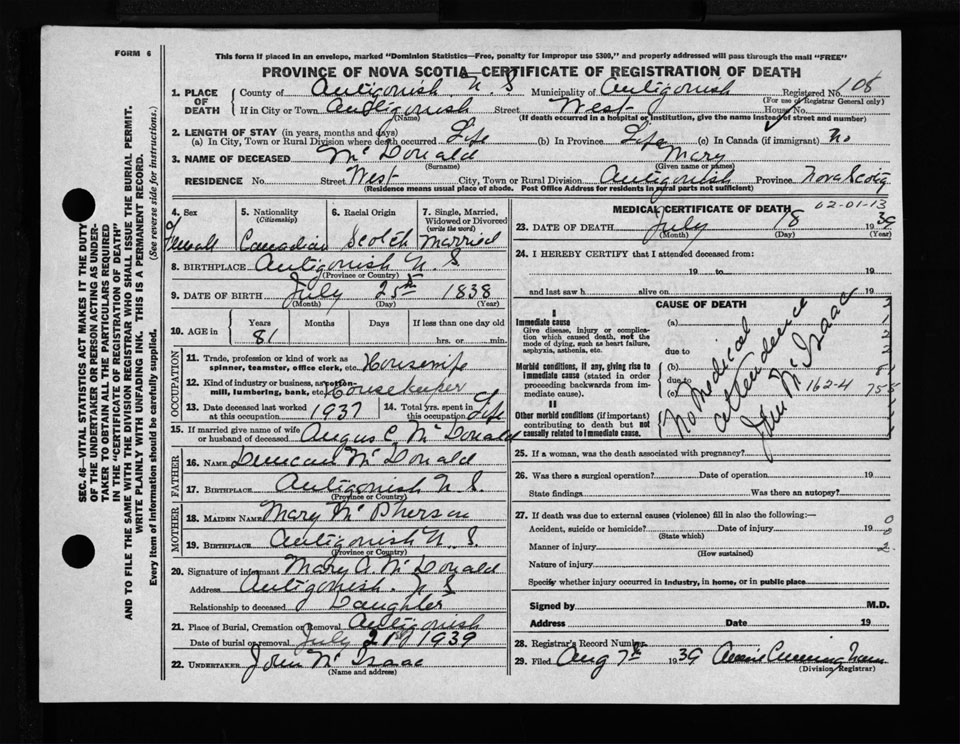 FORM 6
This form if placed in an envelope, marked "Dominion Statistics—Free, penalty for improper use $300," and properly addressed will pass through the mail "FREE"
PROVINCE OF NOVA SCOTIA—CERTIFICATE OF REGISTRATION OF DEATH
1. PLACE OF DEATH County of Antigonish N. S. Municipality of Antigonish Registered No. 108
(For use of Registrar General only)
If in City or Town Antigonish Street West House No.
(Name) (If death occurred in a hospital or institution, give the name instead of street and number)
2. LENGTH OF STAY (in years, months and days)
(a) In City, Town or Rural Division where death occurred Life (b) In Province Life (c) In Canada (if immigrant) No
3. NAME OF DECEASED McDonald Mary
(Surname) (Given name or names)
RESIDENCE No. Street West City, Town or Rural Division Antigonish Province Nova Scotia
(Residence means usual place of abode. Post Office Address for residents in rural parts not sufficient)
4. Sex 5. Nationality (Citizenship) 6. Racial Origin 7. Single, Married, Widowed or Divorced (write the word)
Female Canadian Scotch Married
8. BIRTHPLACE Antigonish N. S.
(Province or Country)
9. DATE OF BIRTH July 25th 1838
(Month) (Day) (Year)
10. AGE in Years Months Days If less than one day old
81 hrs. or min.
OCCUPATION
11. Trade, profession or kind of work as spinner, teamster, office clerk, etc. Housewife
12. Kind of industry or business, as cotton mill, lumbering, bank, etc. Housekeeper
13. Date deceased last worked at this occupation 1937 14. Total yrs. spent in this occupation Life
15. If married give name of wife or husband of deceased Angus C. McDonald
FATHER
16. NAME Duncan McDonald
17. BIRTHPLACE Antigonish N. S.
(Province or Country)
MOTHER
18. MAIDEN NAME Mary McPherson
19. BIRTHPLACE Antigonish N. S.
(Province or Country)
20. Signature of informant Mary A. McDonald
Address Antigonish. N S
Relationship to deceased Daughter
21. Place of Burial, Cremation or Removal Antigonish
Date of burial or removal July 21st 1939
22. UNDERTAKER John McIsaac
(Name and address)
MEDICAL CERTIFICATE OF DEATH 02-01-13
23. DATE OF DEATH July 18 1939
(Month) (Day) (Year)
24. I HEREBY CERTIFY that I attended deceased from:
19 to 19
and last saw h alive on 19
CAUSE OF DEATH
I
Immediate cause
Give disease, injury or complication which caused death, not the mode of dying, such as heart failure, asphyxia, asthenia, etc.
(a)
due to
Morbid conditions, if any, giving rise to immediate cause (stated in order proceeding backwards from immediate cause).
(b)
due to
(c)
II
Other morbid conditions (if important) contributing to death but not causally related to immediate cause.
No medical
attendence
John McIsaac
162-4
25. If a woman, was the death associated with pregnancy?
26. Was there a surgical operation? Date of operation 19
State findings Was there an autopsy?
27. If death was due to external causes (violence) fill in also the following:—
Accident, suicide or homicide? Date of injury 19
(State which)
Manner of injury
(How sustained)
Nature of injury
Specify whether injury occurred in industry, in home, or in public place
Signed by M.D.
Address Date 19
28. Registrar's Record Number
29. Filed Aug 7th 1939
(Division Registrar)
SEC. 46—VITAL STATISTICS ACT MAKES IT THE DUTY
OF THE UNDERTAKER OR PERSON ACTING AS UNDER-
TAKER TO OBTAIN ALL THE PARTICULARS REQUIRED
IN THE "CERTIFICATE OF REGISTRATION OF DEATH"
AND TO FILE THE SAME WITH THE DIVISION REGISTRAR WHO SHALL ISSUE THE BURIAL PERMIT.
WRITE PLAINLY WITH UNFADING INK. THIS IS A PERMANENT RECORD.
Every item of information should be carefully supplied. (See reverse side for instructions.)